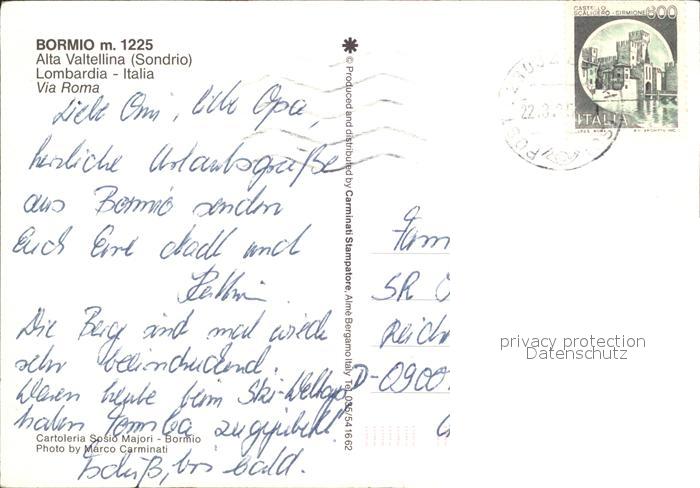 BORMIO m. 1225
Alta Valtellina (Sondrio)
Lombardia - Italia
Via Roma
Liebe Omi, lieber Opa,
herzliche Urlaubsgrüße
aus Bormio senden
Euch Eure und
Die Berge sind mal wieder
sehr beeindruckend.
Waren heute beim Ski-Weltcup
haben Tomba zugejubelt!
Tschüß, bis bald.
Cartoleria Sosio Majori - Bormio
Photo by Marco Carminati
© Produced and distributed by Carminati Stampatore, Almè Bergamo Italy Tel. 035/541662
CASTELLO
SCALIGERO - SIRMIONE
600
ITALIA
Fam
SR
Reich
D-0900
privacy protection
Datenschutz